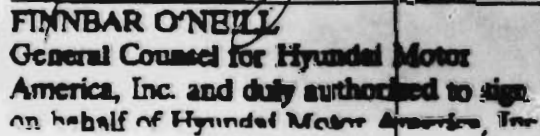 FINNBAR O'NEILL
General Counsel for Hyundai Motor
America, Inc. and duly authorized to sign
on behalf of Hyundai Motor America, Inc